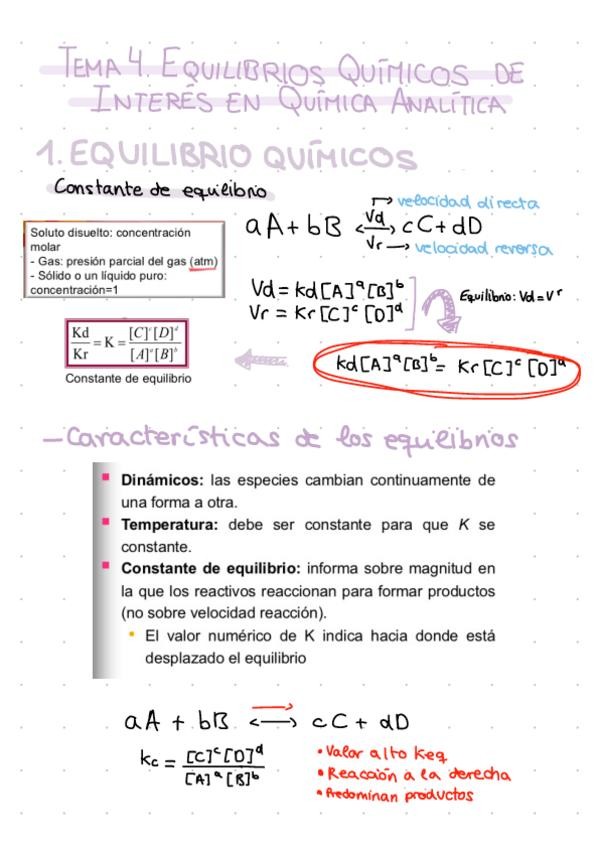 TEMA 4. EQUILIBRIOS QUÍMICOS DE
INTERÉS EN QUÍMICA ANALÍTICA
1. EQUILIBRIO QUÍMICOS
Constante de equilibrio
Soluto disuelto: concentración
molar
- Gas: presión parcial del gas (atm)
- Sólido o un líquido puro:
concentración=1
→ velocidad directa
aA + bB ⇄ cC + dD
Vd
Vr → velocidad reversa
Vd = kd[A]ᵃ[B]ᵇ
Vr = Kr[C]ᶜ[D]ᵈ
Equilibrio: Vd = Vr
Kd/Kr = K = [C]ᶜ[D]ᵈ / [A]ᵃ[B]ᵇ
Constante de equilibrio
kd[A]ᵃ[B]ᵇ = Kr[C]ᶜ[D]ᵈ
- Características de los equilibrios
▪ Dinámicos: las especies cambian continuamente de
una forma a otra.
▪ Temperatura: debe ser constante para que K se
constante.
▪ Constante de equilibrio: informa sobre magnitud en
la que los reactivos reaccionan para formar productos
(no sobre velocidad reacción).
▪ El valor numérico de K indica hacia donde está
desplazado el equilibrio
aA + bB ⟷ cC + dD
kc = [C]ᶜ[D]ᵈ / [A]ᵃ[B]ᵇ
• Valor alto Keq
• Reacción a la derecha
• Predominan productos